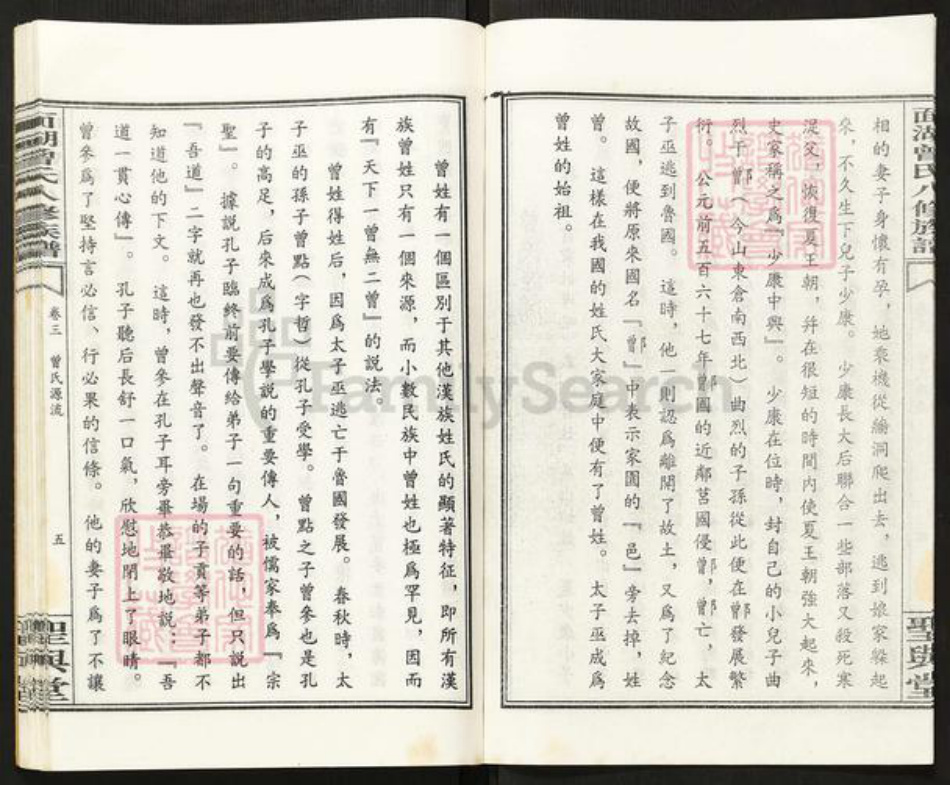 相的妻子身懷有孕，她乘機從牆洞爬出去，逃到娘家躲起
來，不久生下兒子少康。少康長大后聯合一些部落又殺死寒
浞父子，恢復夏王朝，并在很短的時間內使夏王朝強大起來，
史家稱之爲『少康中興』。少康在位時，封自己的小兒子曲
烈于鄫（今山東倉南西北）曲烈的子孫從此便在鄫發展繁
衍。公元前五百六十七年鄫國的近鄰莒國侵鄫，鄫亡，太
子巫逃到魯國。這時，他一則認爲離開了故土，又爲了紀念
故國，便將原來國名『鄫』中表示家園的『邑』旁去掉，姓
曾。這樣在我國的姓氏大家庭中便有了曾姓。太子巫成爲
曾姓的始祖。
面湖曾氏八修族譜
聖與堂
曾姓有一個區別于其他漢族姓氏的顯著特征，即所有漢
族曾姓只有一個來源，而小數民族中曾姓也極爲罕見，因而
有『天下一曾無二曾』的說法。
曾姓得姓后，因爲太子巫逃亡于魯國發展。春秋時，太
子巫的孫子曾點（字哲）從孔子受學。曾點之子曾參也是孔
子的高足，后來成爲孔子學說的重要傳人，被儒家奉爲『宗
聖』。據說孔子臨終前要傳給弟子一句重要的話，但只說出
『吾道』二字就再也發不出聲音了。在場的子貢等弟子都不
知道他的下文。這時，曾參在孔子耳旁畢恭畢敬地說：『吾
道一貫心傳』。孔子聽后長舒一口氣，欣慰地閉上了眼睛。
曾參爲了堅持言必信、行必果的信條。他的妻子爲了不讓
面湖曾氏八修族譜
卷三 曾氏源流
五
FamilySearch